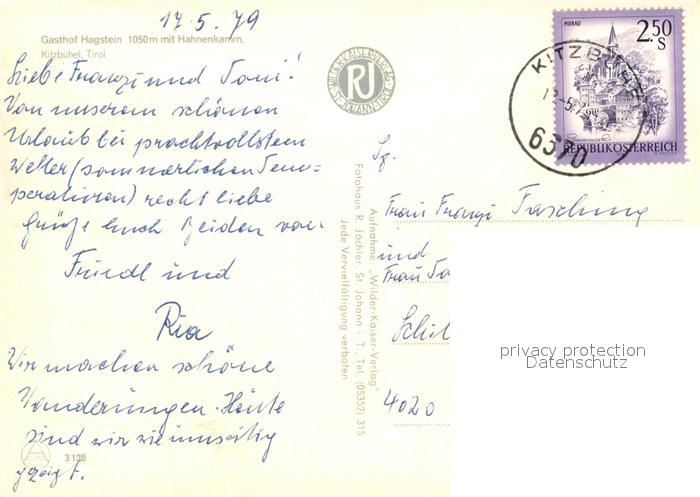 17.5.79
Gasthof Hagstein 1050m mit Hahnenkamm,
Kitzbühel, Tirol
Liebe Franzi und Toni!
Von unserem schönen
Urlaub bei prachtvollstem
Wetter (sommerlichen Tem-
peraturen) recht liebe
Grüße Euch Beiden von
Friedl und
Ria
Wir machen schöne
Wanderungen. Heute
sind wir wie umseitig
gezeigt.
3128
RJ
Aufnahme: „Wilder-Kaiser-Verlag"
Fotohaus R. Jöchler, St. Johann i. T., Tel. (05352) 315
Jede Vervielfältigung verboten
MURAU
2.50
S
REPUBLIK ÖSTERREICH
KITZBÜHEL
6370
Frau Franzi Fasching
und
Frau
4020
privacy protection
Datenschutz